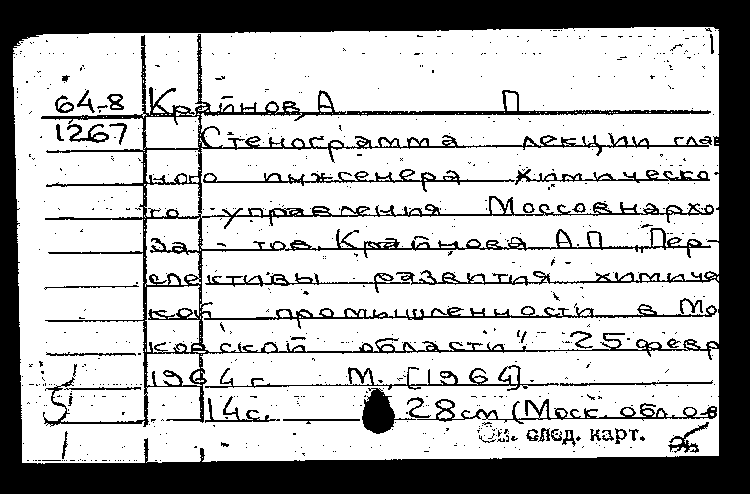 64-8 Крайнов, А П
1267 Стенограмма лекции глав
ного инженера химическо-
го управления Мосσовнархо-
за - тов. Крайнова А.П. „Пер-
спективы развития химиче
кой промышленности в Мо
ковской области". 25 февр
1964 г. М., [1964].
14 с. 28 см (Моск. обл. о-в
См. след. карт.